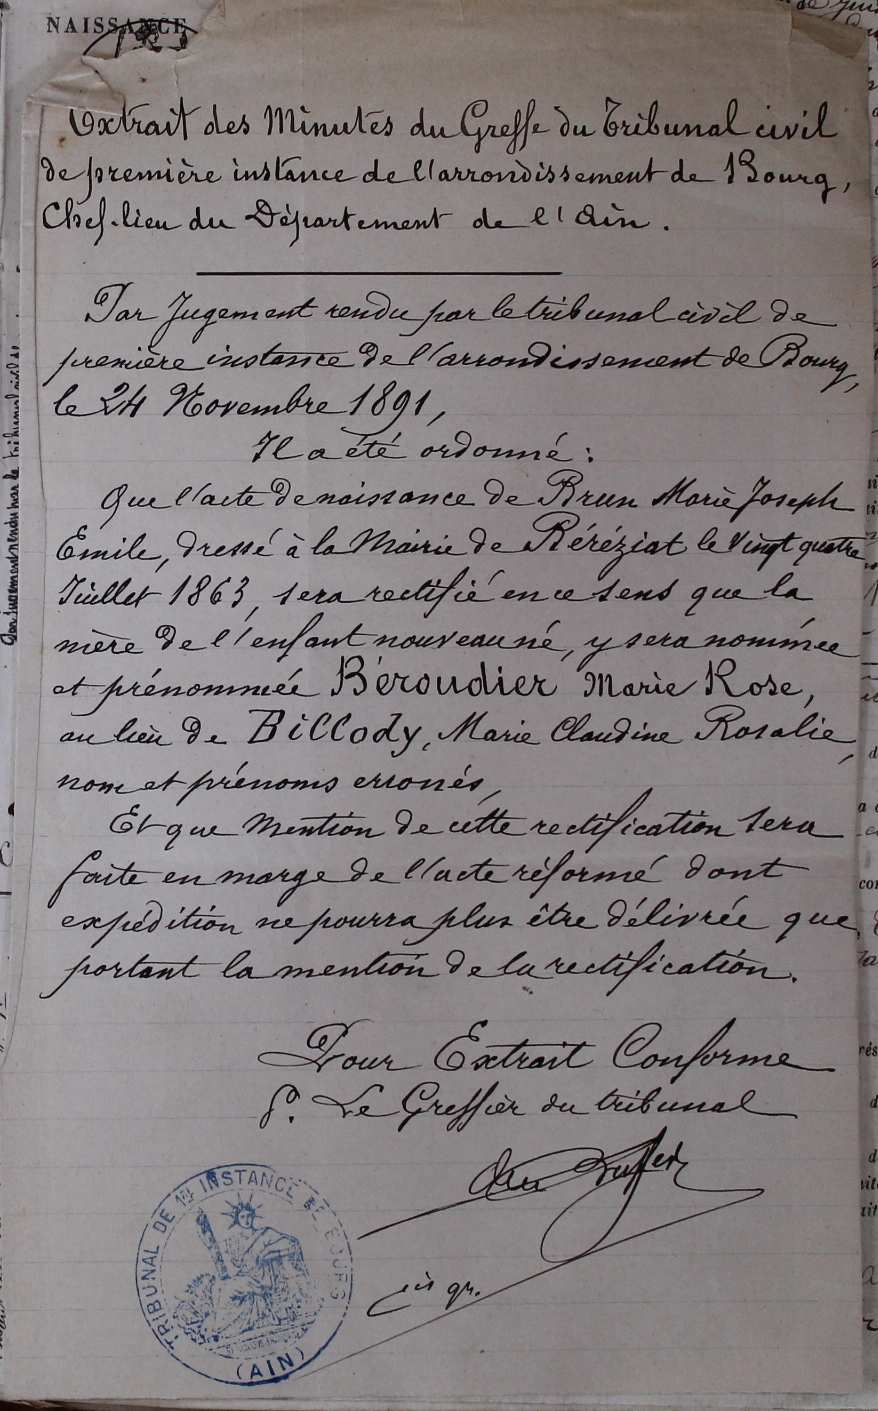 NAISSANCE
Extrait des Minutes du Greffe du Tribunal civil
de première instance de l'arrondissement de Bourg,
Chef-lieu du Département de l'Ain.
Par Jugement rendu par le tribunal civil de
première instance de l'arrondissement de Bourg,
le 24 Novembre 1891,
Il a été ordonné :
Que l'acte de naissance de Brun Marie Joseph
Emile, dressé à la Mairie de Béréziat le Vingt quatre
Juillet 1863, sera rectifié en ce sens que la
mère de l'enfant nouveau né, y sera nommée
et prénommée Béroudier Marie Rose,
au lieu de Billody, Marie Claudine Rosalie,
nom et prénoms erronés,
Et que Mention de cette rectification sera
faite en marge de l'acte réformé dont
expédition ne pourra plus être délivrée que
portant la mention de la rectification.
Pour Extrait Conforme
P. Le Greffier du tribunal
TRIBUNAL DE 1RE INSTANCE DE BOURG
(AIN)